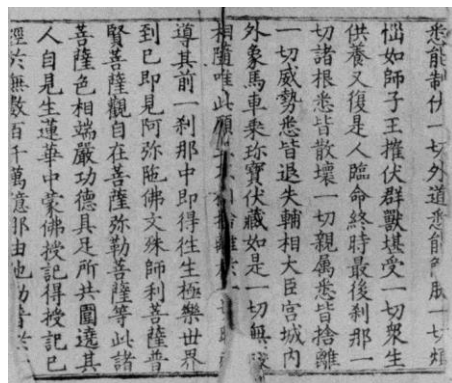 悉能制伏一切外道悉能一切煩
惱如師子王摧伏群獸堪受一切衆生
供養又復是人臨命終時最後刹那一
切諸根悉皆散壞一切親属悉皆捨離
一切威勢悉皆退失輔相大臣宫城内
外象馬車乗珎寶伏藏如是一切無
相隨唯此願相捨離
導其前一刹那中即得徃生極樂世界
到已即見阿弥陁佛文殊師利菩薩普
賢菩薩觀自在菩薩弥勒菩薩等此諸
菩薩色相端嚴功德具足所共圍遶其
人自見生蓮華中蒙佛授記得授記已
經於無數百千萬億那由他劫普於